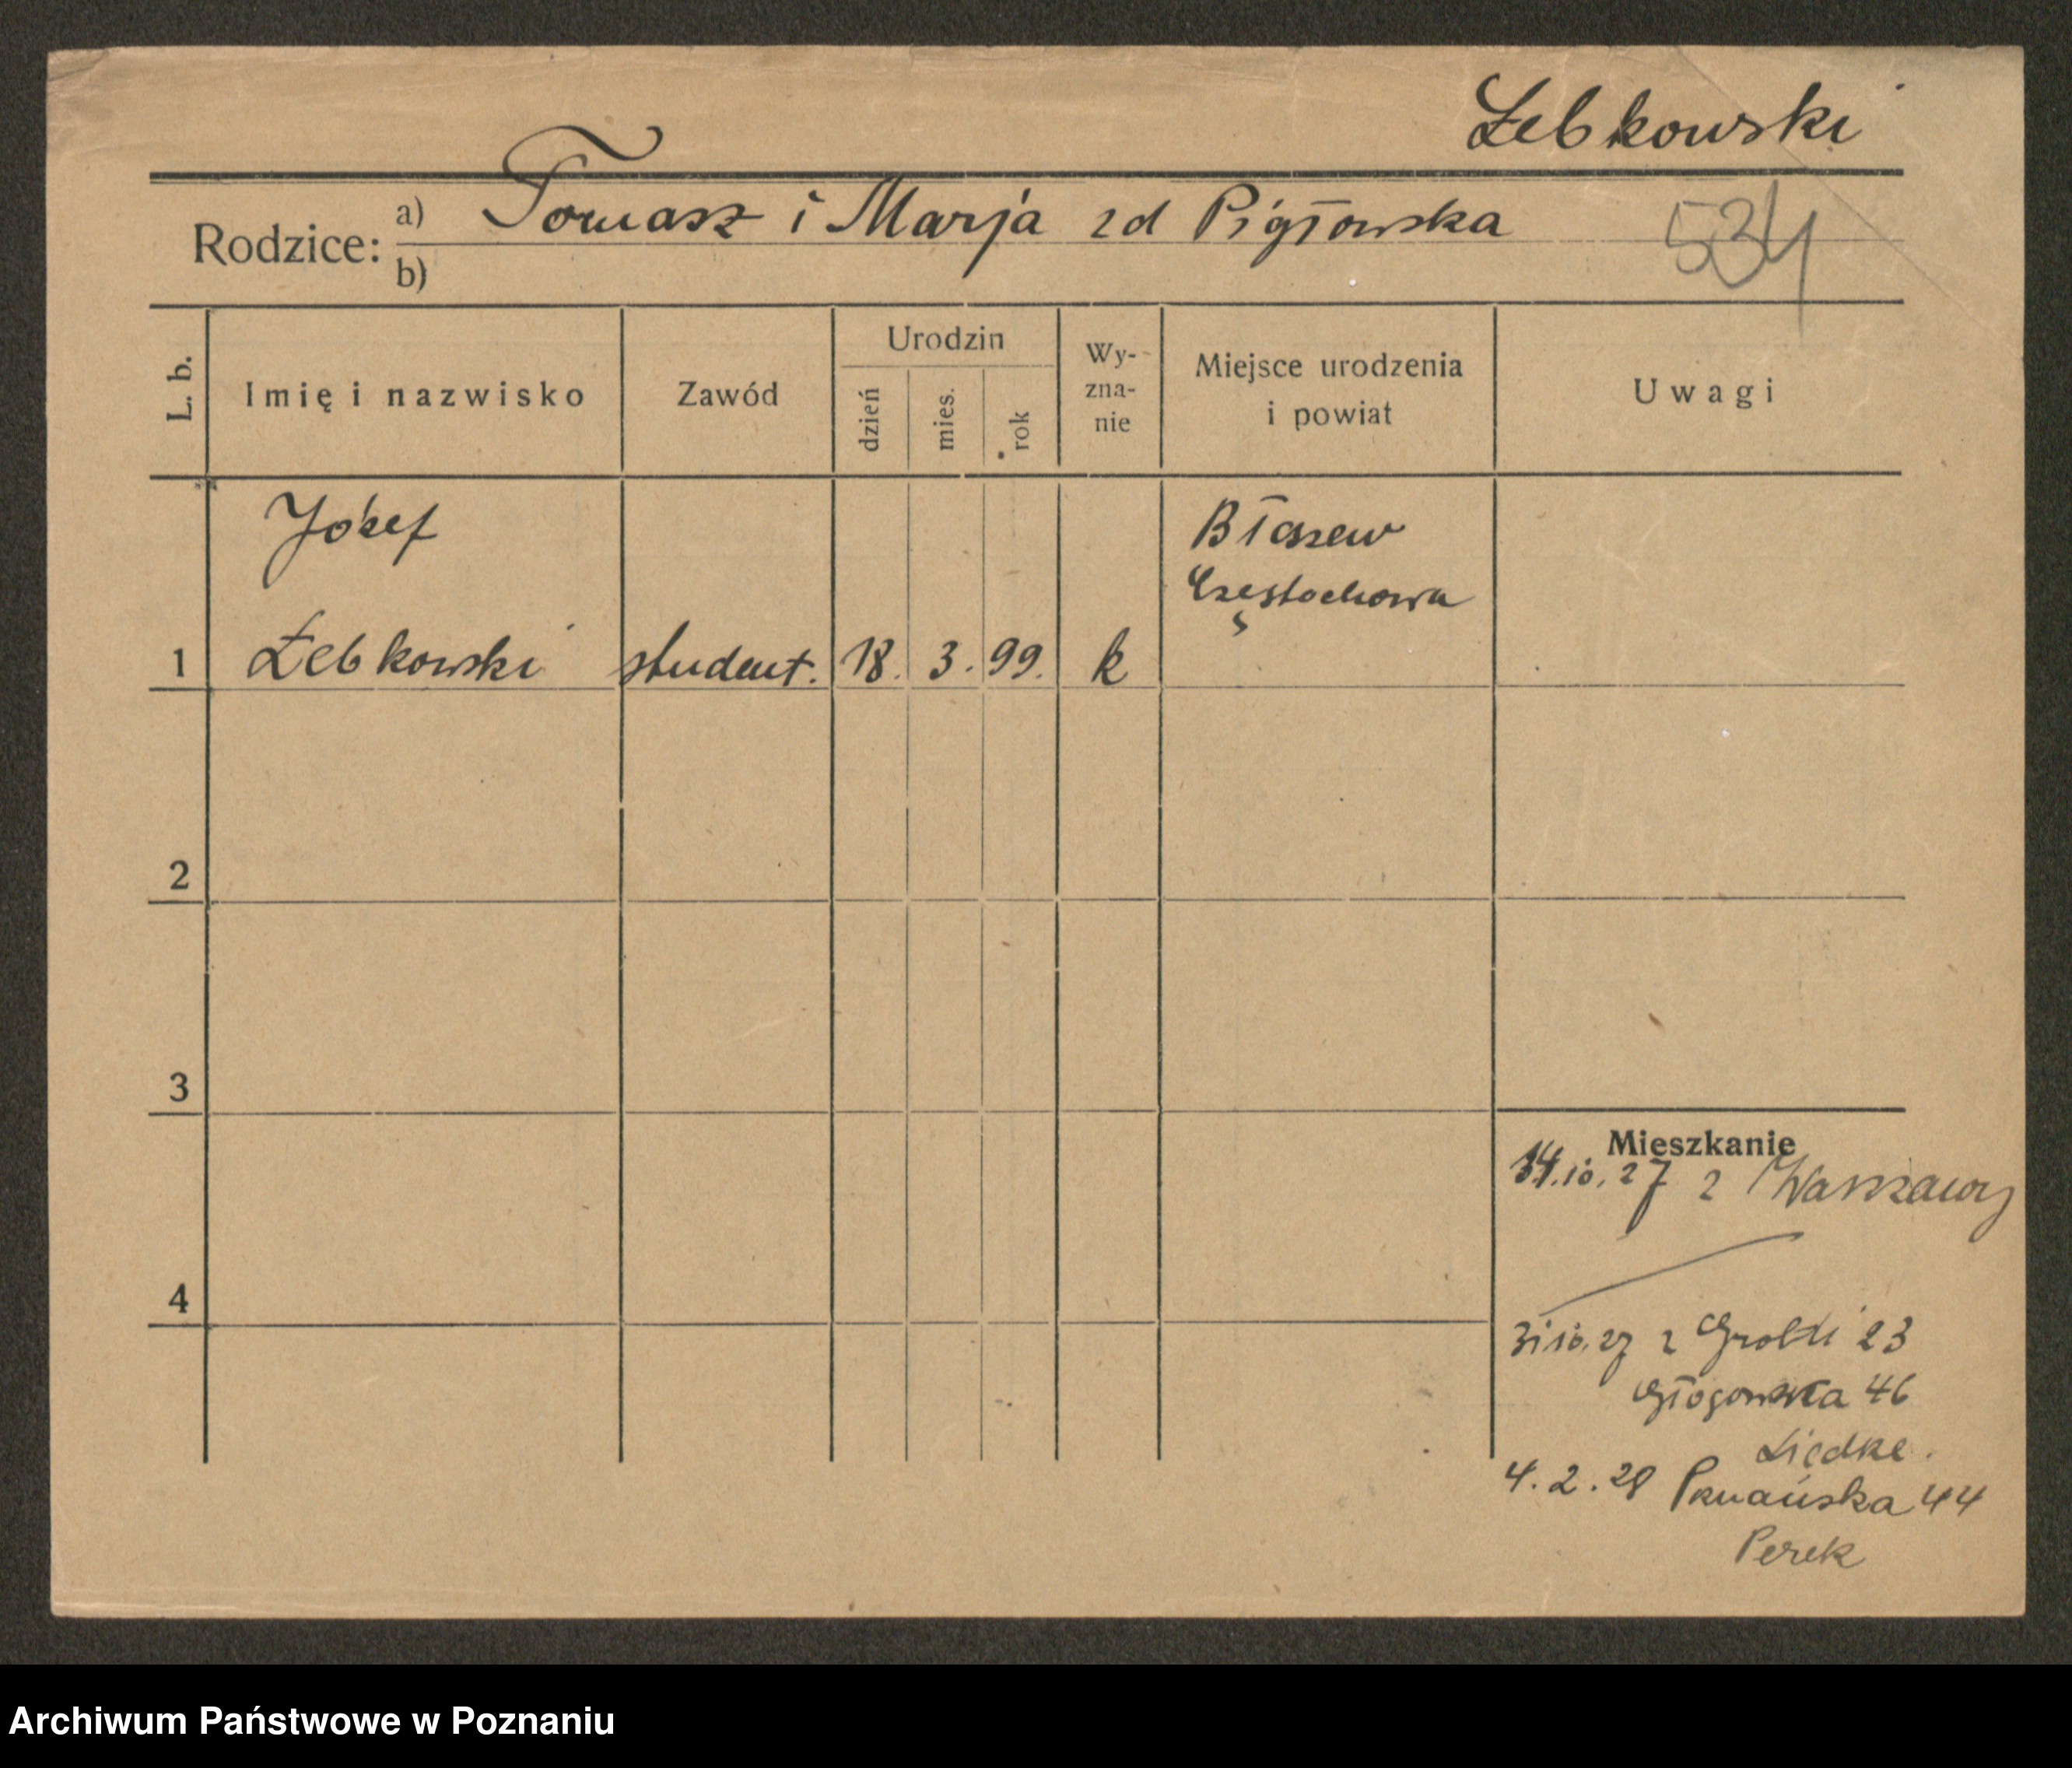 Łebkowski
Rodzice: a) Tomasz i Marja zd Pigłowska
b)
534
L. b.
Imię i nazwisko
Zawód
Urodzin
dzień
mies.
rok
Wy-
zna-
nie
Miejsce urodzenia
i powiat
Uwagi
Józef
Błaszew
Częstochowa
1 Łebkowski student. 18. 3. 99. k
2
3
4
Mieszkanie
14.10.27 z Warszawy
31 10. 27 z Grobli 23
Głogowska 46
Liedke.
4. 2. 28 Poznańska 44
Perek
Archiwum Państwowe w Poznaniu